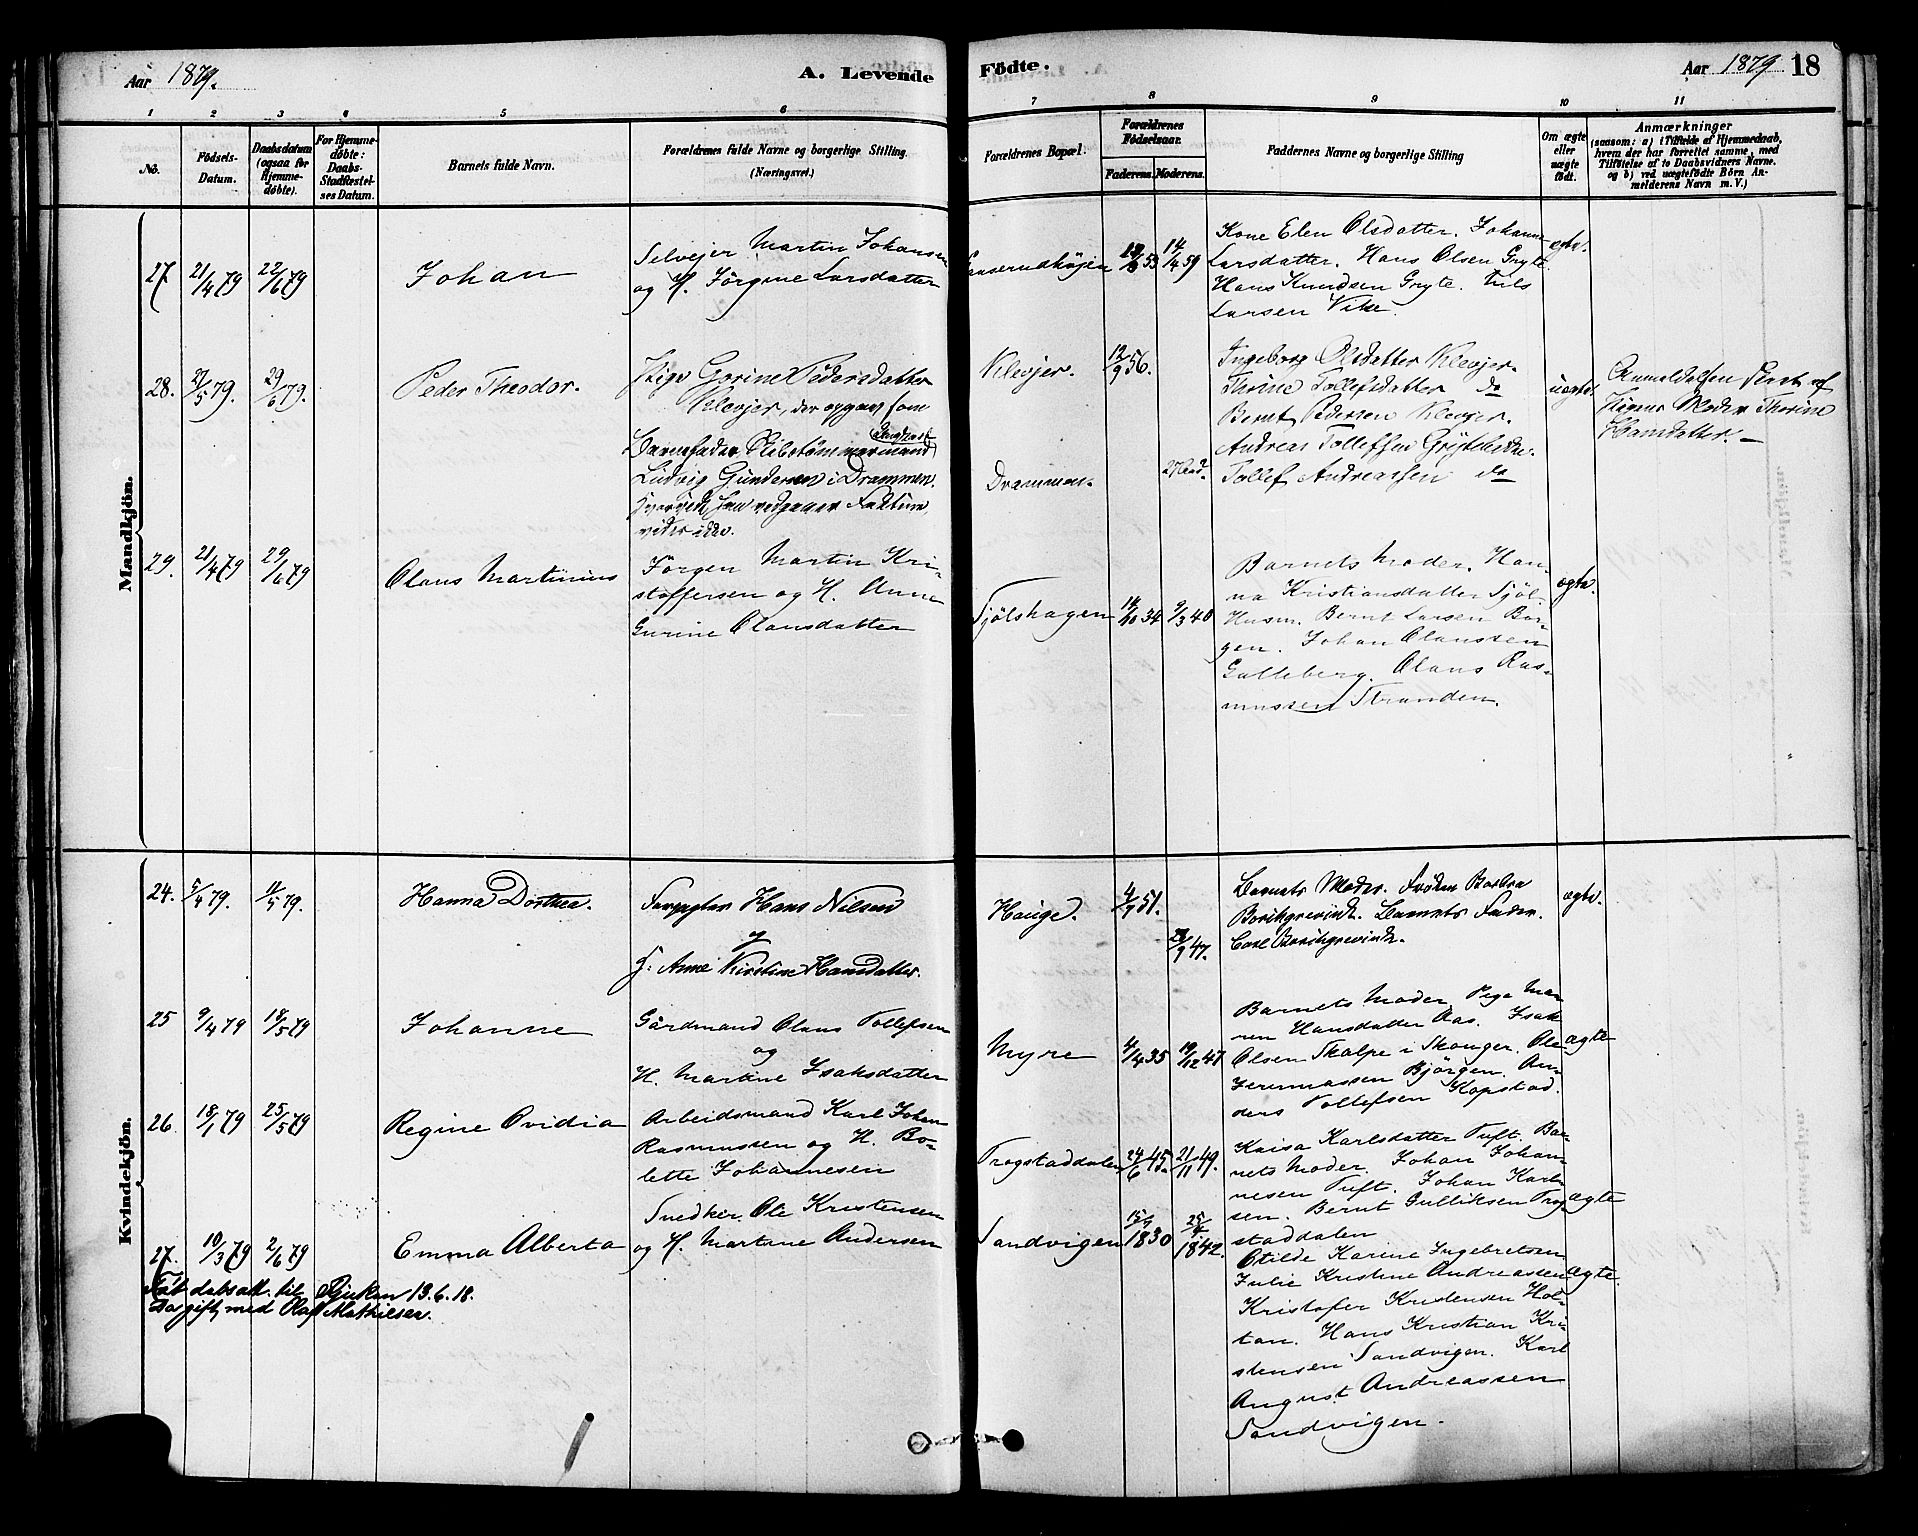 Aar 1879.
A. Levende
Födte.
Aar 1879 18
1 2 3 4 5 6
7 8 9 10 11
No.
Födsels-
Datum.
Daabsdatum
(ogsaa for
Hjemme-
döbte).
For Hjemme-
döbte:
Daabs-
Stadfæstel-
ses Datum.
Barnets fulde Navn.
Forældrenes fulde Navne og borgerlige Stilling.
(Næringsvei.)
Forældrenes Bopæl.
Forældrenes
Födselsaar.
Faderens. Moderens.
Faddernes Navne og borgerlige Stilling
Om ægte
eller
uægte
födt.
Anmærkninger
(saasom: a) i Tilfælde af Hjemmedaab,
hvem der har forrettet samme, med
Tilföielse af to Daabsvidners Navne.
og b) ved uægtefödte Börn An-
melderens Navn m. V.)
Mandkjön.
27 21/4 79 22/6 79
Johan
Selvejer Martin Johansen
og H. Jörgine Larsdatter
53 14/4 59
Kone Elen Olsdatter. Johanne
Larsdatter. Hans Olsen Gryte.
Hans Knudsen Gryte. Nils
Larsen Vike.
ægte.
28. 27/5 79. 29/6 79.
Peder Theodor.
Pige Gorine Pedersdatter
Klevjer, der opgav som
Barnefader Skibstömmermand
Ludvig Gundersen i Drammen.
Klevjer. 12/9 56.
Drammen.
Ingeborg Olsdatter Klevjer.
Thrine Tollefsdatter do
Bernt Pedersen Klevjer.
Andreas Tolleffsen
Tollef Andreassen do
uægte.
Anmeldelsen af
Pigens Moder Thorine
Hansdatter. —
29. 21/4 79 29/6 79
Olaus Martinius
Jörgen Martin Kri-
stoffersen og H. Anne
Gurine Olausdatter
Sjölshagen 14/10 34 9/3 40
Barnets Moder. Han-
na Kristiansdatter Sjöl.
Husm. Bernt Larsen Bor-
gen. Johan Olaussen
Galleberg. Olaus Ras-
mussen Stranden.
ægte.
Kvindekjön.
24. 5/4 79. 11/5 79.
Hanna Dorthea.
Forpagter Hans Nilsen
og
H. Anne Kirstine Hansdatter.
Hauge. 4/7 51.
47.
Barnets Moder. Fröken Barbra
Borchgrevink. Barnets Fader.
Carl Borchgrevink.
ægte.
25 9/4 79 18/5 79
Johanne
Gårdmand Olaus Tollefsen
og
H. Martine Isaksdatter
Myre 4/4 35 19/12 47
Barnets Moder. Pige Ma-
ren Hansdatter Aas. Isak
Olsen Skalpe i Skouger. Ole
Jeremiassen Björgen. An-
ders Tollefsen Kopstad.
ægte
26 18/1 79 25/5 79
Regine Ovidia
Arbeidsmand Karl Johan
Rasmussen og H. Bo-
lette Johannesen
Trogstaddalen 24/6 45. 21/11 49.
Kaisa Karlsdatter Tuft. Bar-
nets Moder. Johan Johan-
nesen Tuft. Johan Karl-
sen. Bernt Gulliksen Trog-
staddalen
ægte
27. 10/3 79 2/6 79
Emma Alberta
Snedker. Ole Kristensen
og H. Martine Andersen
Sandvigen 1830 1842.
Otilde Karine Ingebretsen
Julie Kristine Andreassen
Kristofer Kristensen Hol-
tan. Hans Kristian Kri-
stensen Sandvigen. Karl
August Andreassen
Sandvigen.
ægte.
Født dabsatt. til Rjukan 13.6.18.
gift med Olaf Mathiesen.